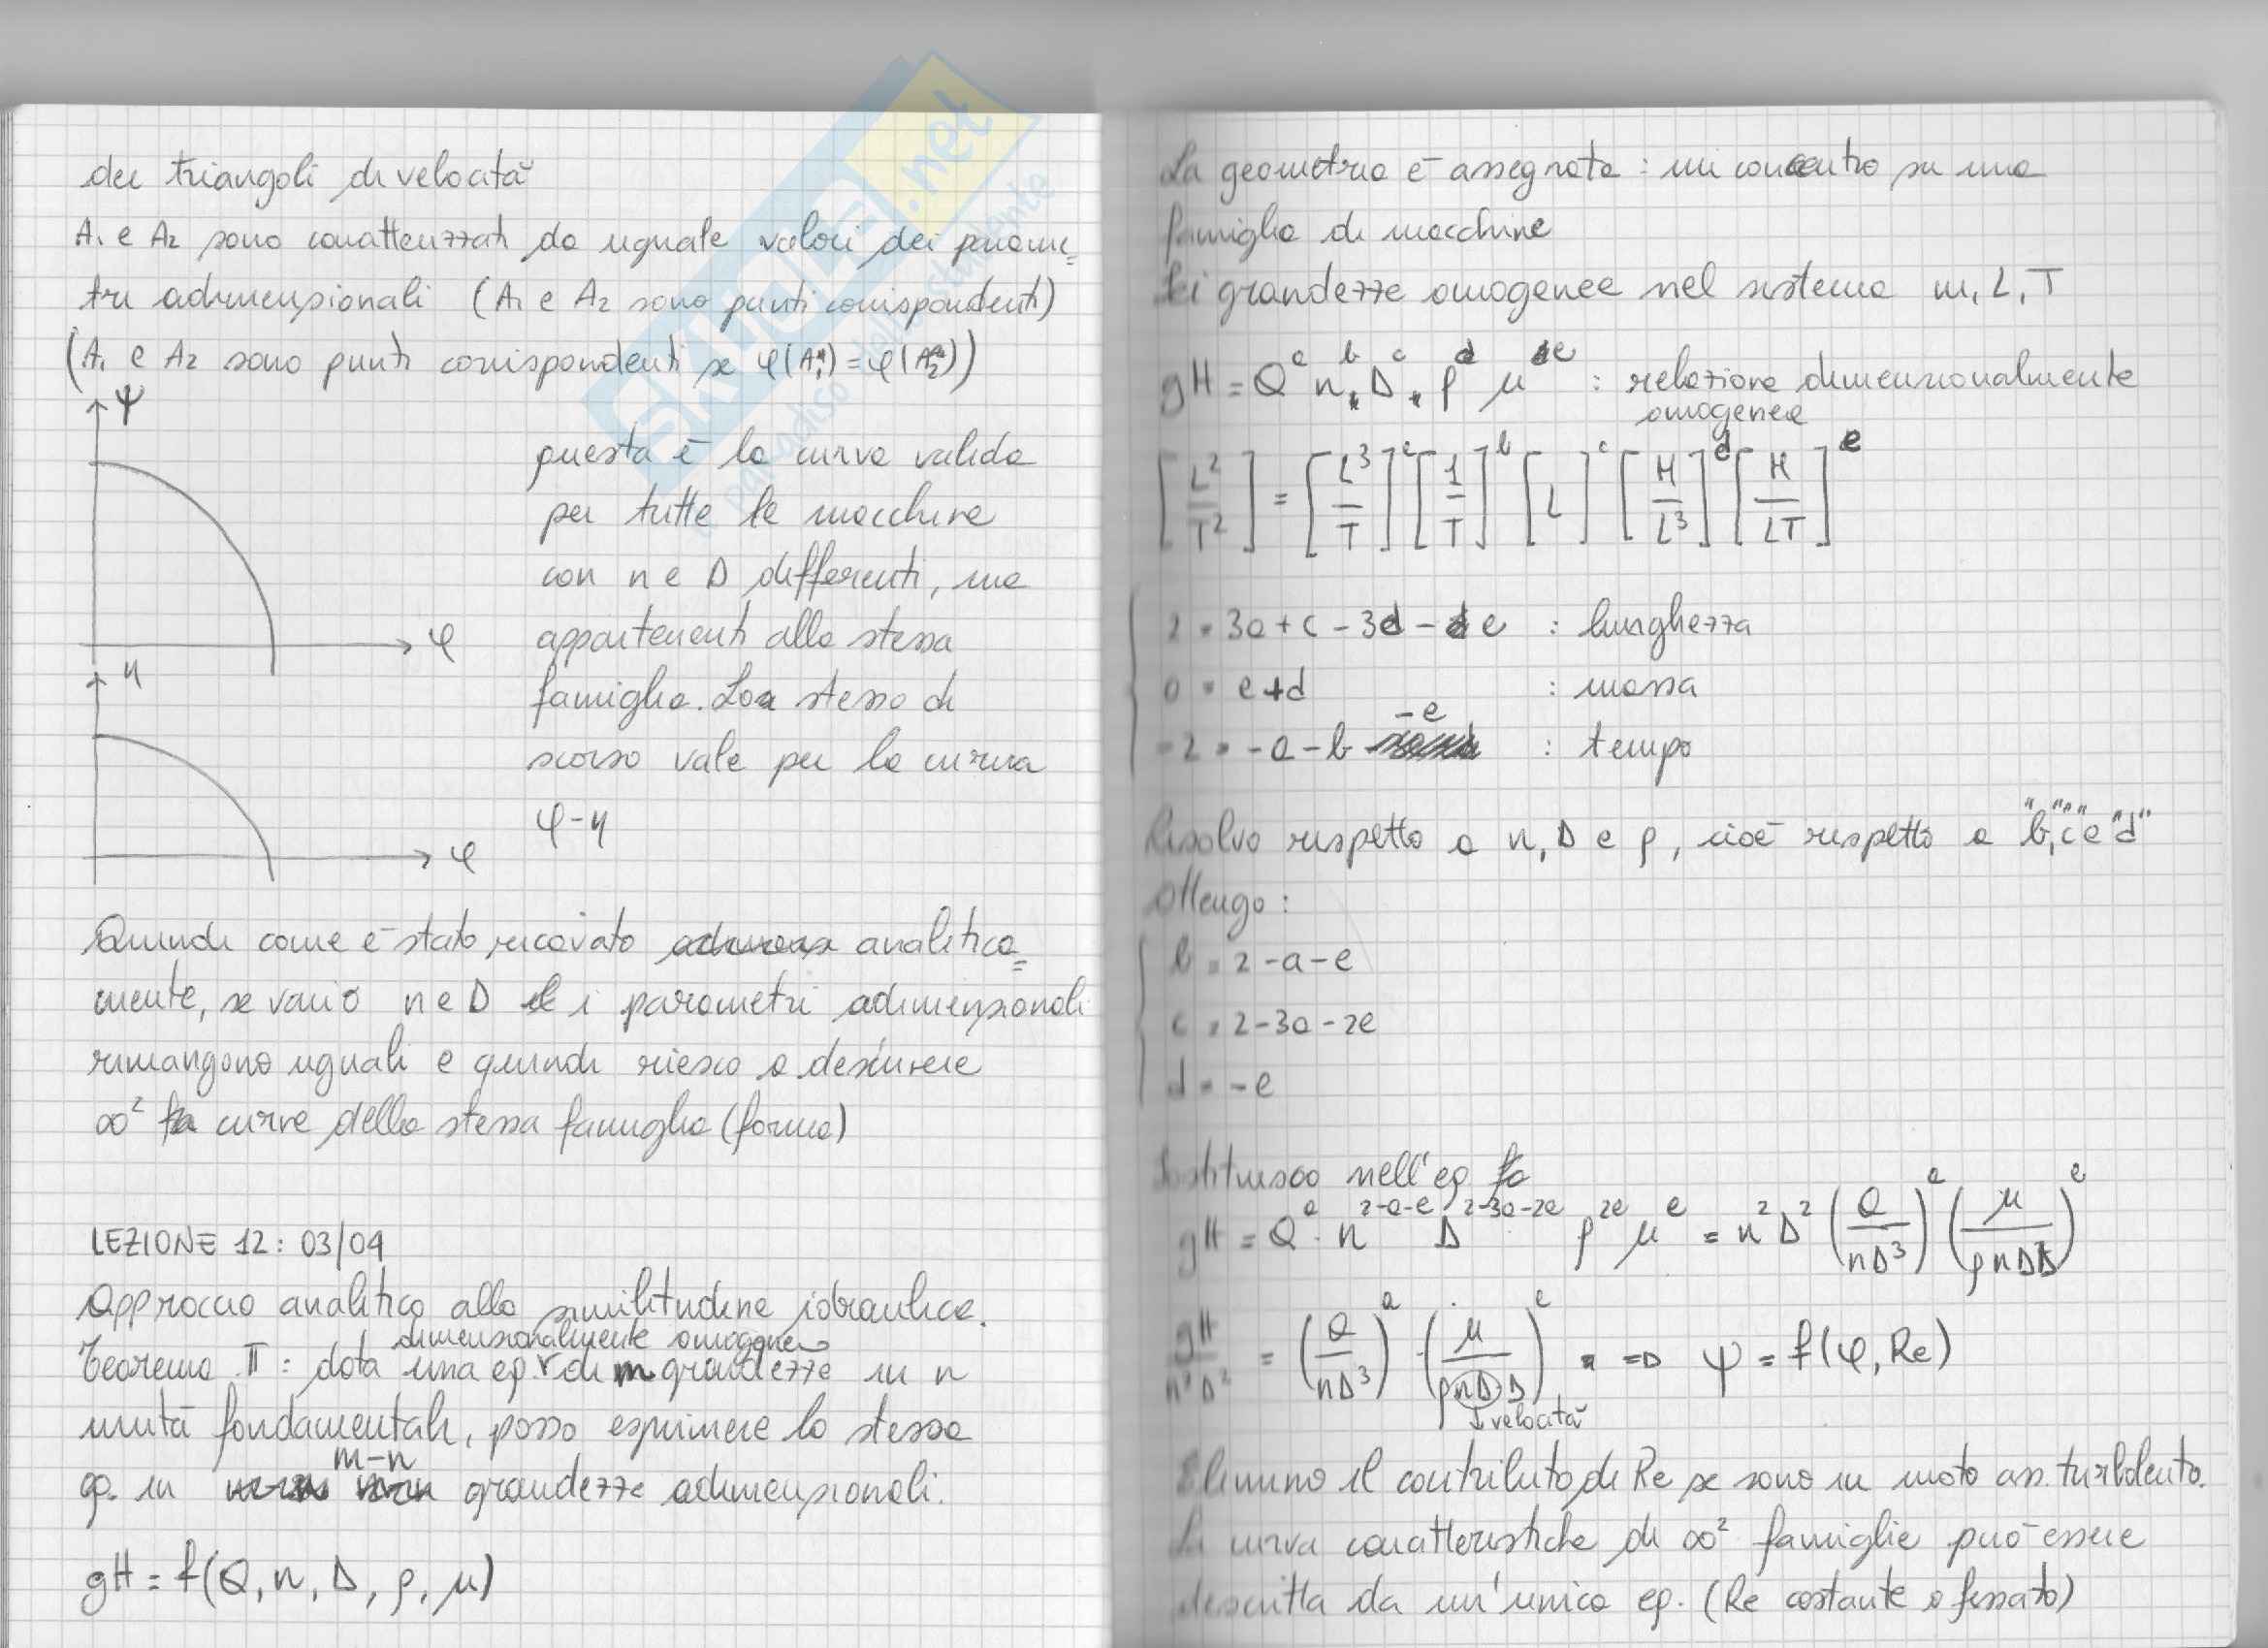 dei triangoli di velocità
A₁ e A₂ sono caratterizzati da uguale valori dei parame=
tri adimensionali (A₁ e A₂ sono punti corrispondenti)
(A₁ e A₂ sono punti corrispondenti se φ(A₁) = φ(A₂))
ψ
φ
η
φ
questa è la curva valida
per tutte le macchine
con n e D differenti, ma
appartenenti alla stessa
famiglia. Lo stesso di
scorso vale per la curva
φ-η
Quindi come è stato ricavato analitica=
mente, se vario n e D i parametri adimensionali
rimangono uguali e quindi riesco a descrivere
∞² curve della stessa famiglia (forma)
LEZIONE 12: 03/04
Approccio analitico alla similitudine idraulica.
dimensionalmente omogenea
Teorema π: data una eq. di m grandezze in n
unità fondamentali, posso esprimere la stessa
m-n
eq. in grandezze adimensionali.
gH = f(Q, n, D, ρ, μ)
La geometria è assegnata: mi concentro su una
famiglia di macchine
Sei grandezze omogenee nel sistema m, L, T
gH = Q^a n^b D^c ρ^d μ^e : relazione dimensionalmente
omogenea
[L²/T²] = [L³/T]^a [1/T]^b [L]^c [M/L³]^d [M/LT]^e
2 = 3a + c - 3d - e : lunghezza
0 = e + d : massa
-2 = -a - b - e : tempo
Risolvo rispetto a n, D e ρ, cioè rispetto a "b","c" e "d"
Ottengo:
b = 2 - a - e
c = 2 - 3a - 2e
d = -e
Sostituisco nell'eq.
gH = Q^a · n^2-a-e D^2-3a-2e ρ^2e μ^e = n² D² (Q/nD³)^a (μ/ρnDD)^e
gH/n²D² = (Q/nD³)^a · (μ/ρnD·D)^e ⇒ ψ = f(φ, Re)
↓ velocità
Elimino il contributo di Re se sono in moto ass. turbolento.
La curva caratteristiche di ∞² famiglie può essere
descritta da un'unica eq. (Re costante o fissato)
SKUOLA.net
paradiso dello studente